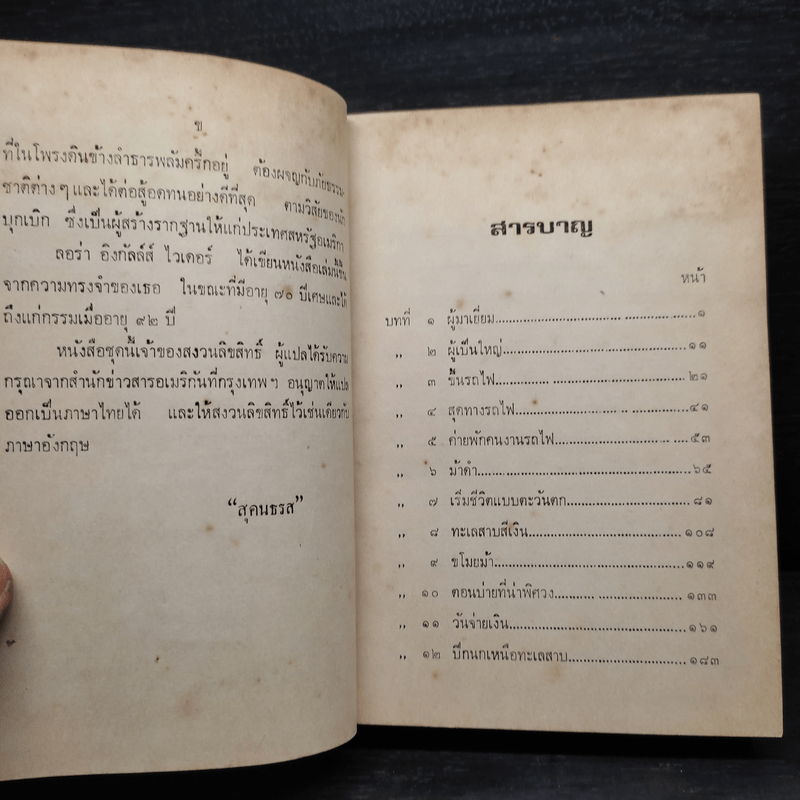 ข
ที่ในโพรงดินข้างลำธารพลัมครี๊กอยู่ ต้องผจญกับภัยธรรม-
ชาติต่าง ๆ และได้ต่อสู้อดทนอย่างดีที่สุด ตามวิสัยของนัก
บุกเบิก ซึ่งเป็นผู้สร้างรากฐานให้แก่ประเทศสหรัฐอเมริกา
ลอร่า อิงกัลล์ส์ ไวเดอร์ ได้เขียนหนังสือเล่มนี้ขึ้น
จากความทรงจำของเธอ ในขณะที่มีอายุ ๗๐ ปีเศษและได้
ถึงแก่กรรมเมื่ออายุ ๙๒ ปี
หนังสือชุดนี้เจ้าของสงวนลิขสิทธิ์ ผู้แปลได้รับความ
กรุณาจากสำนักข่าวสารอเมริกันที่กรุงเทพฯ อนุญาตให้แปล
ออกเป็นภาษาไทยได้ และให้สงวนลิขสิทธิ์ไว้เช่นเดียวกับ
ภาษาอังกฤษ
“สุคนธรส”
สารบาญ
หน้า
บทที่ ๑ ผู้มาเยี่ยม ๑
,, ๒ ผู้เป็นใหญ่ ๑๑
,, ๓ ขึ้นรถไฟ ๒๑
,, ๔ สุดทางรถไฟ ๔๑
,, ๕ ค่ายพักคนงานรถไฟ ๕๓
,, ๖ ม้าดำ ๖๕
,, ๗ เริ่มชีวิตแบบตะวันตก ๘๑
,, ๘ ทะเลสาบสีเงิน ๑๐๘
,, ๙ ขโมยม้า ๑๑๙
,, ๑๐ ตอนบ่ายที่น่าพิศวง ๑๓๓
,, ๑๑ วันจ่ายเงิน ๑๖๑
,, ๑๒ ปีกนกเหนือทะเลสาบ ๑๘๓